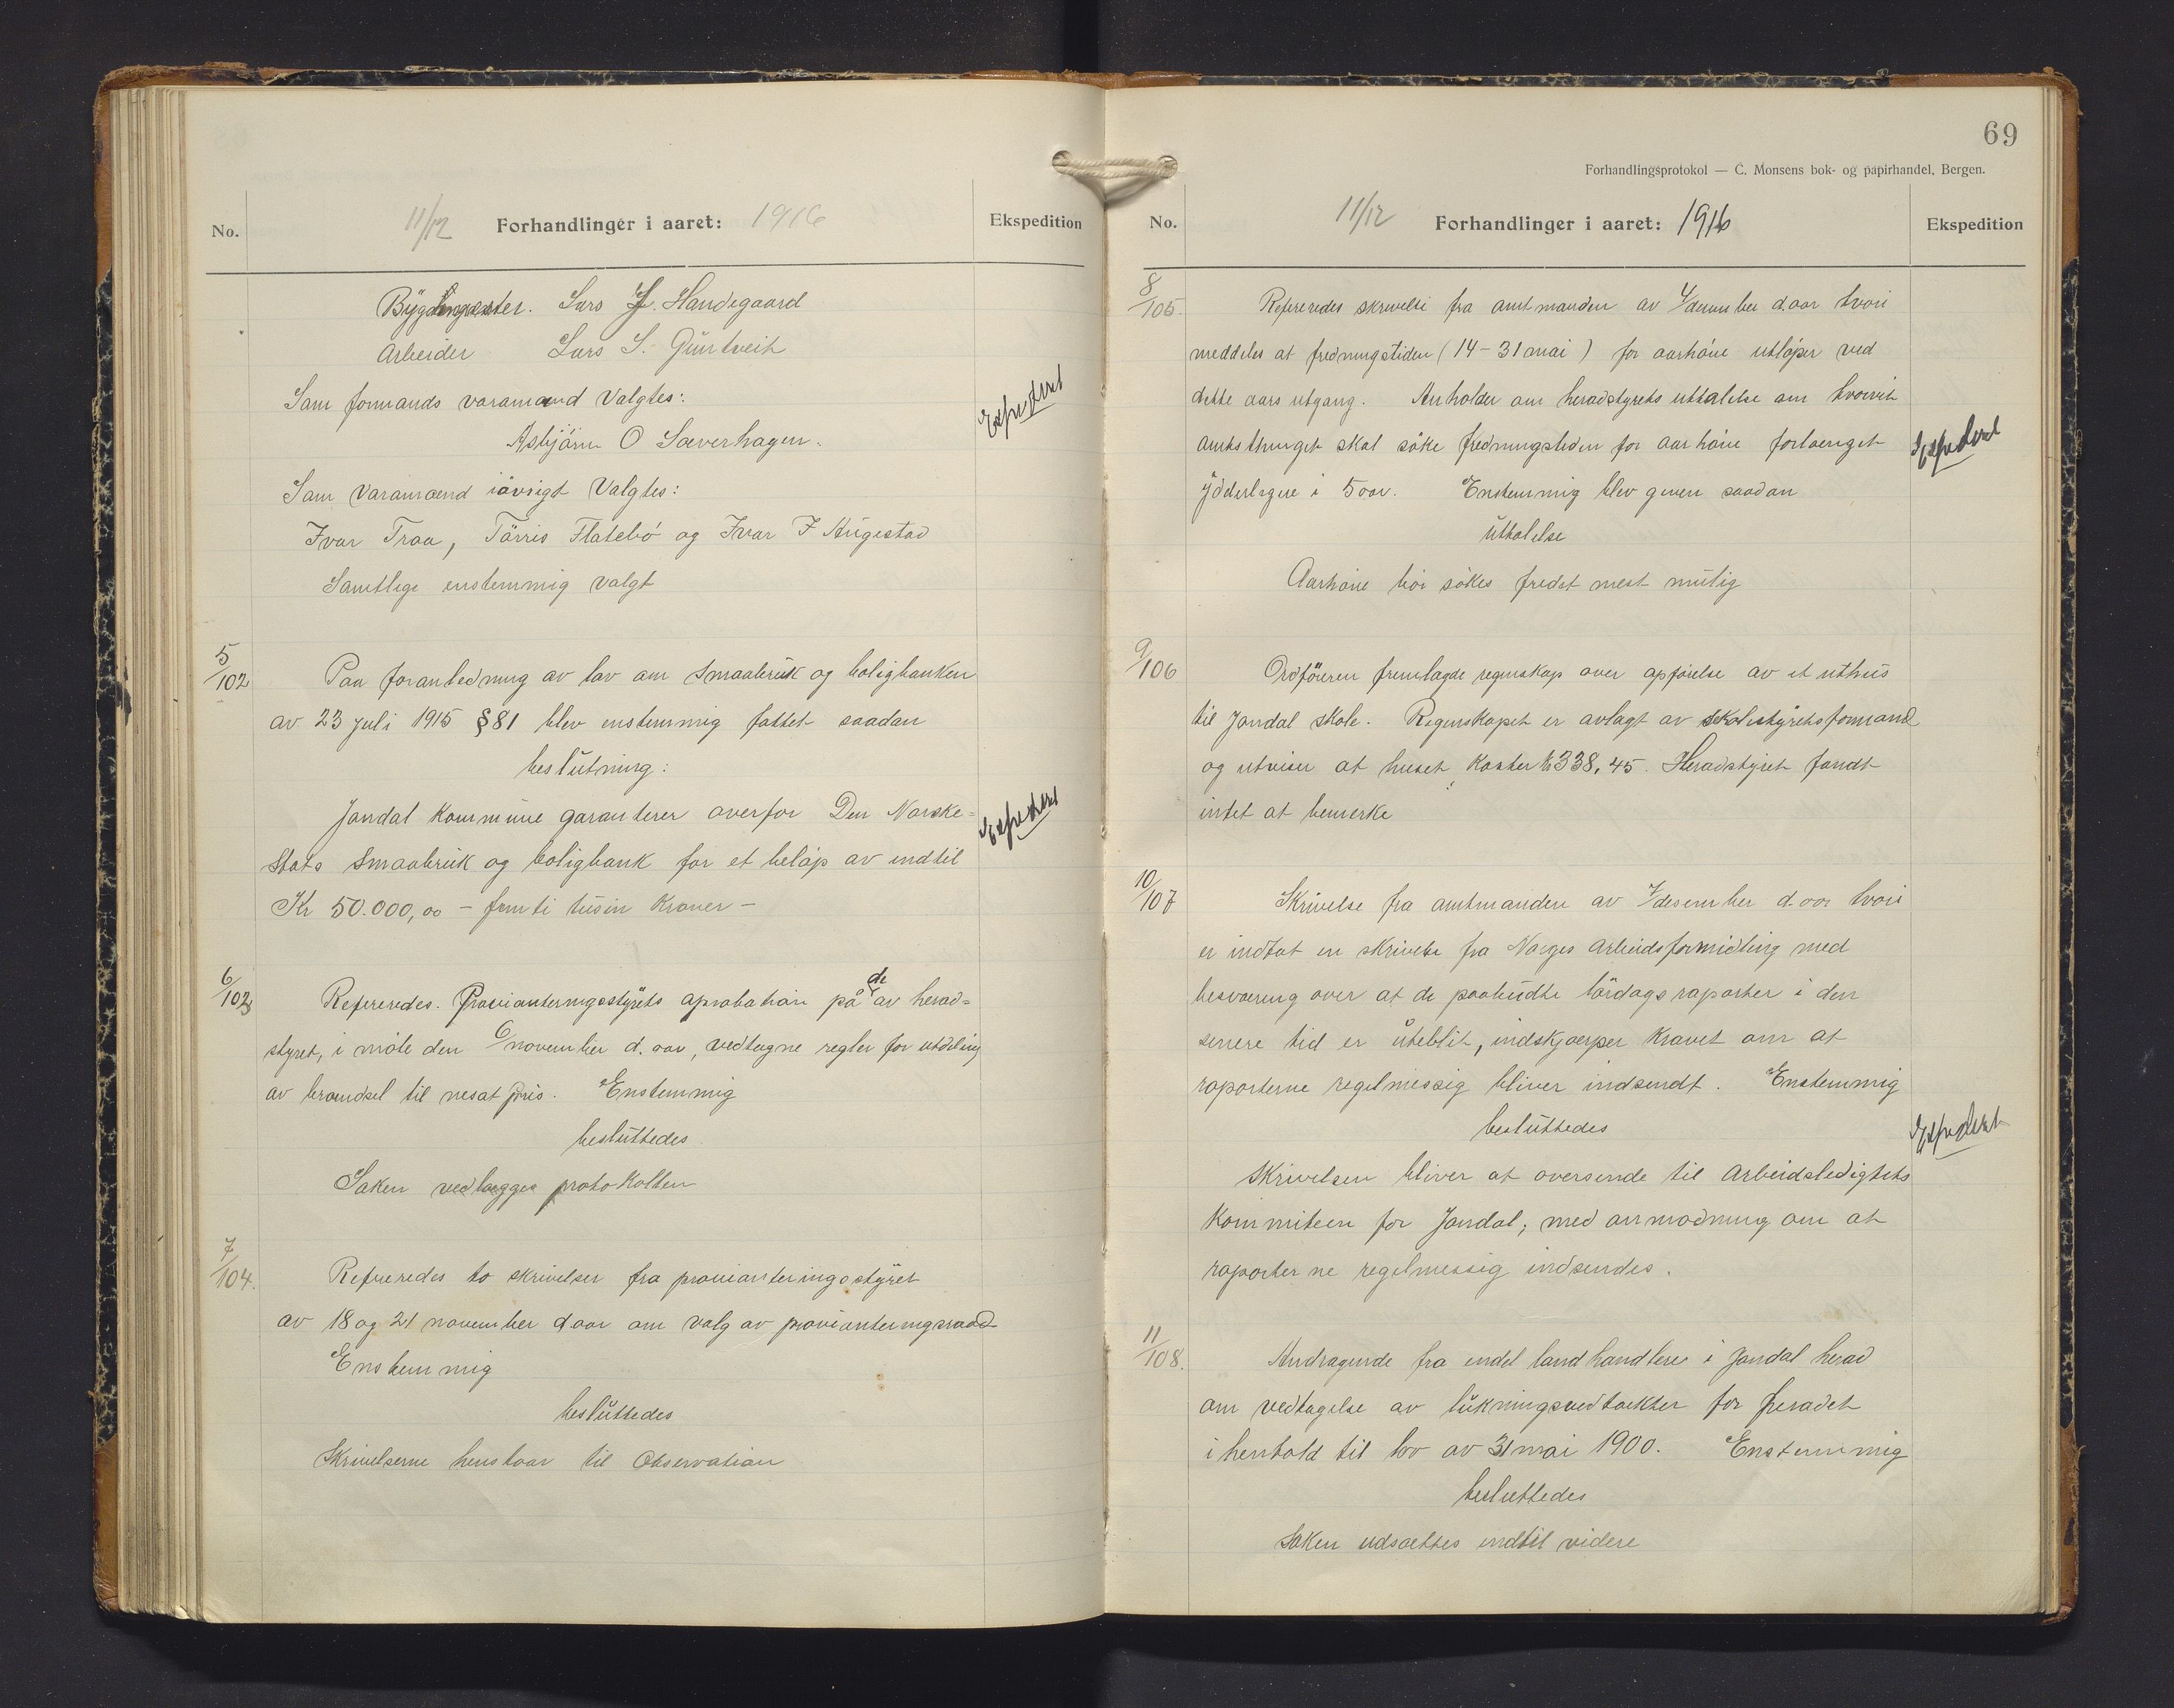 No.
11/12 Forhandlinger i aaret: 1916
Ekspedition
Bygdingeniør. Lars J. Handegaard
Arbeider Lars S. Guntveit
Som formands varamand Valgtes:
Asbjörn O Sæverhagen.
Expedert
Som Varamænd iövrigt Valgtes:
Ivar Traa, Törris Flatebö og Ivar I Augestad
Samtlige enstemmig valgt
5/102
Paa foranledning av lov om Smaabruk og boligbanken
av 23 juli 1915 §81 blev enstemmig fattet saadan
beslutning:
Jondal Kommune garanterer overfor Den Norske-
Stats Smaabruk og boligbank for et belöp av indtil
Kr 50.000,00 - femti tusin Kroner -
Expedert
6/103
Refereredes. Provianteringsstyrets aprobation på de av herad=
styret, i möte den 6/november d. aar, vedtagne regler for utdeling
av brændsel til nesat pris. Enstemmig
besluttedes.
Saken vedlægges protokollen
7/104.
Refereredes to skrivelser fra provianteringsstyret
av 18 og 21 november d aar om valg av provianteringsraad
Enstemmig
besluttedes
Skrivelserne henstaar til Observation
69
Forhandlingsprotokol — C. Monsens bok- og papirhandel, Bergen.
No.
11/12 Forhandlinger i aaret: 1916
Ekspedition
8/105.
Refereredes skrivelse fra amtmanden av desember d.aar hvori
meddeles at fredningstiden (14-31 mai) for aarhöne utlöper ved
dette aars utgang. Anholder om heradstyrets uttalelse om hvorvit
amtsthinget skal söke fredningstiden for aarhöne forlænget
yderligere i 5 aar. Enstemmig blev given saadan
uttalelse
Aarhöne bör sökes fredet mest mulig
Expedert
9/106
Ordföreren fremlagde regnskap over opförelse av et uthus
til Jondal skole. Regnskapet er avlagt av skolestyrets formand
og utviser at huset koster kr 338,45. Heradstyret fandt
intet at bemerke
10/107
Skrivelse fra amtmanden av desember d. aar hvori
er indtat en skrivelse fra Norges Arbeidsformidling med
besværing over at de paabudte lördags raporter i den
senere tid er uteblit, indskjærper Kravet om at
raporterne regelmessig bliver indsendt. Enstemmig
besluttedes
Skrivelsen bliver at oversende til Arbeidsledigtets
Kommiteen for Jondal, med anmodning om at
raporterne regelmessig indsendes.
Expedert
11/108.
Andragende fra endel landhandlere i Jondal herad
om vedtagelse av lukningsvedtækter for heradet
i henhold til lov av 31 mai 1900. Enstemmig
besluttedes
Saken udsættes indtil videre